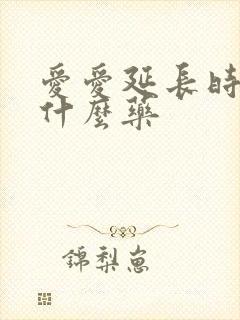 愛愛延長時
什麼藥
錦梨崽